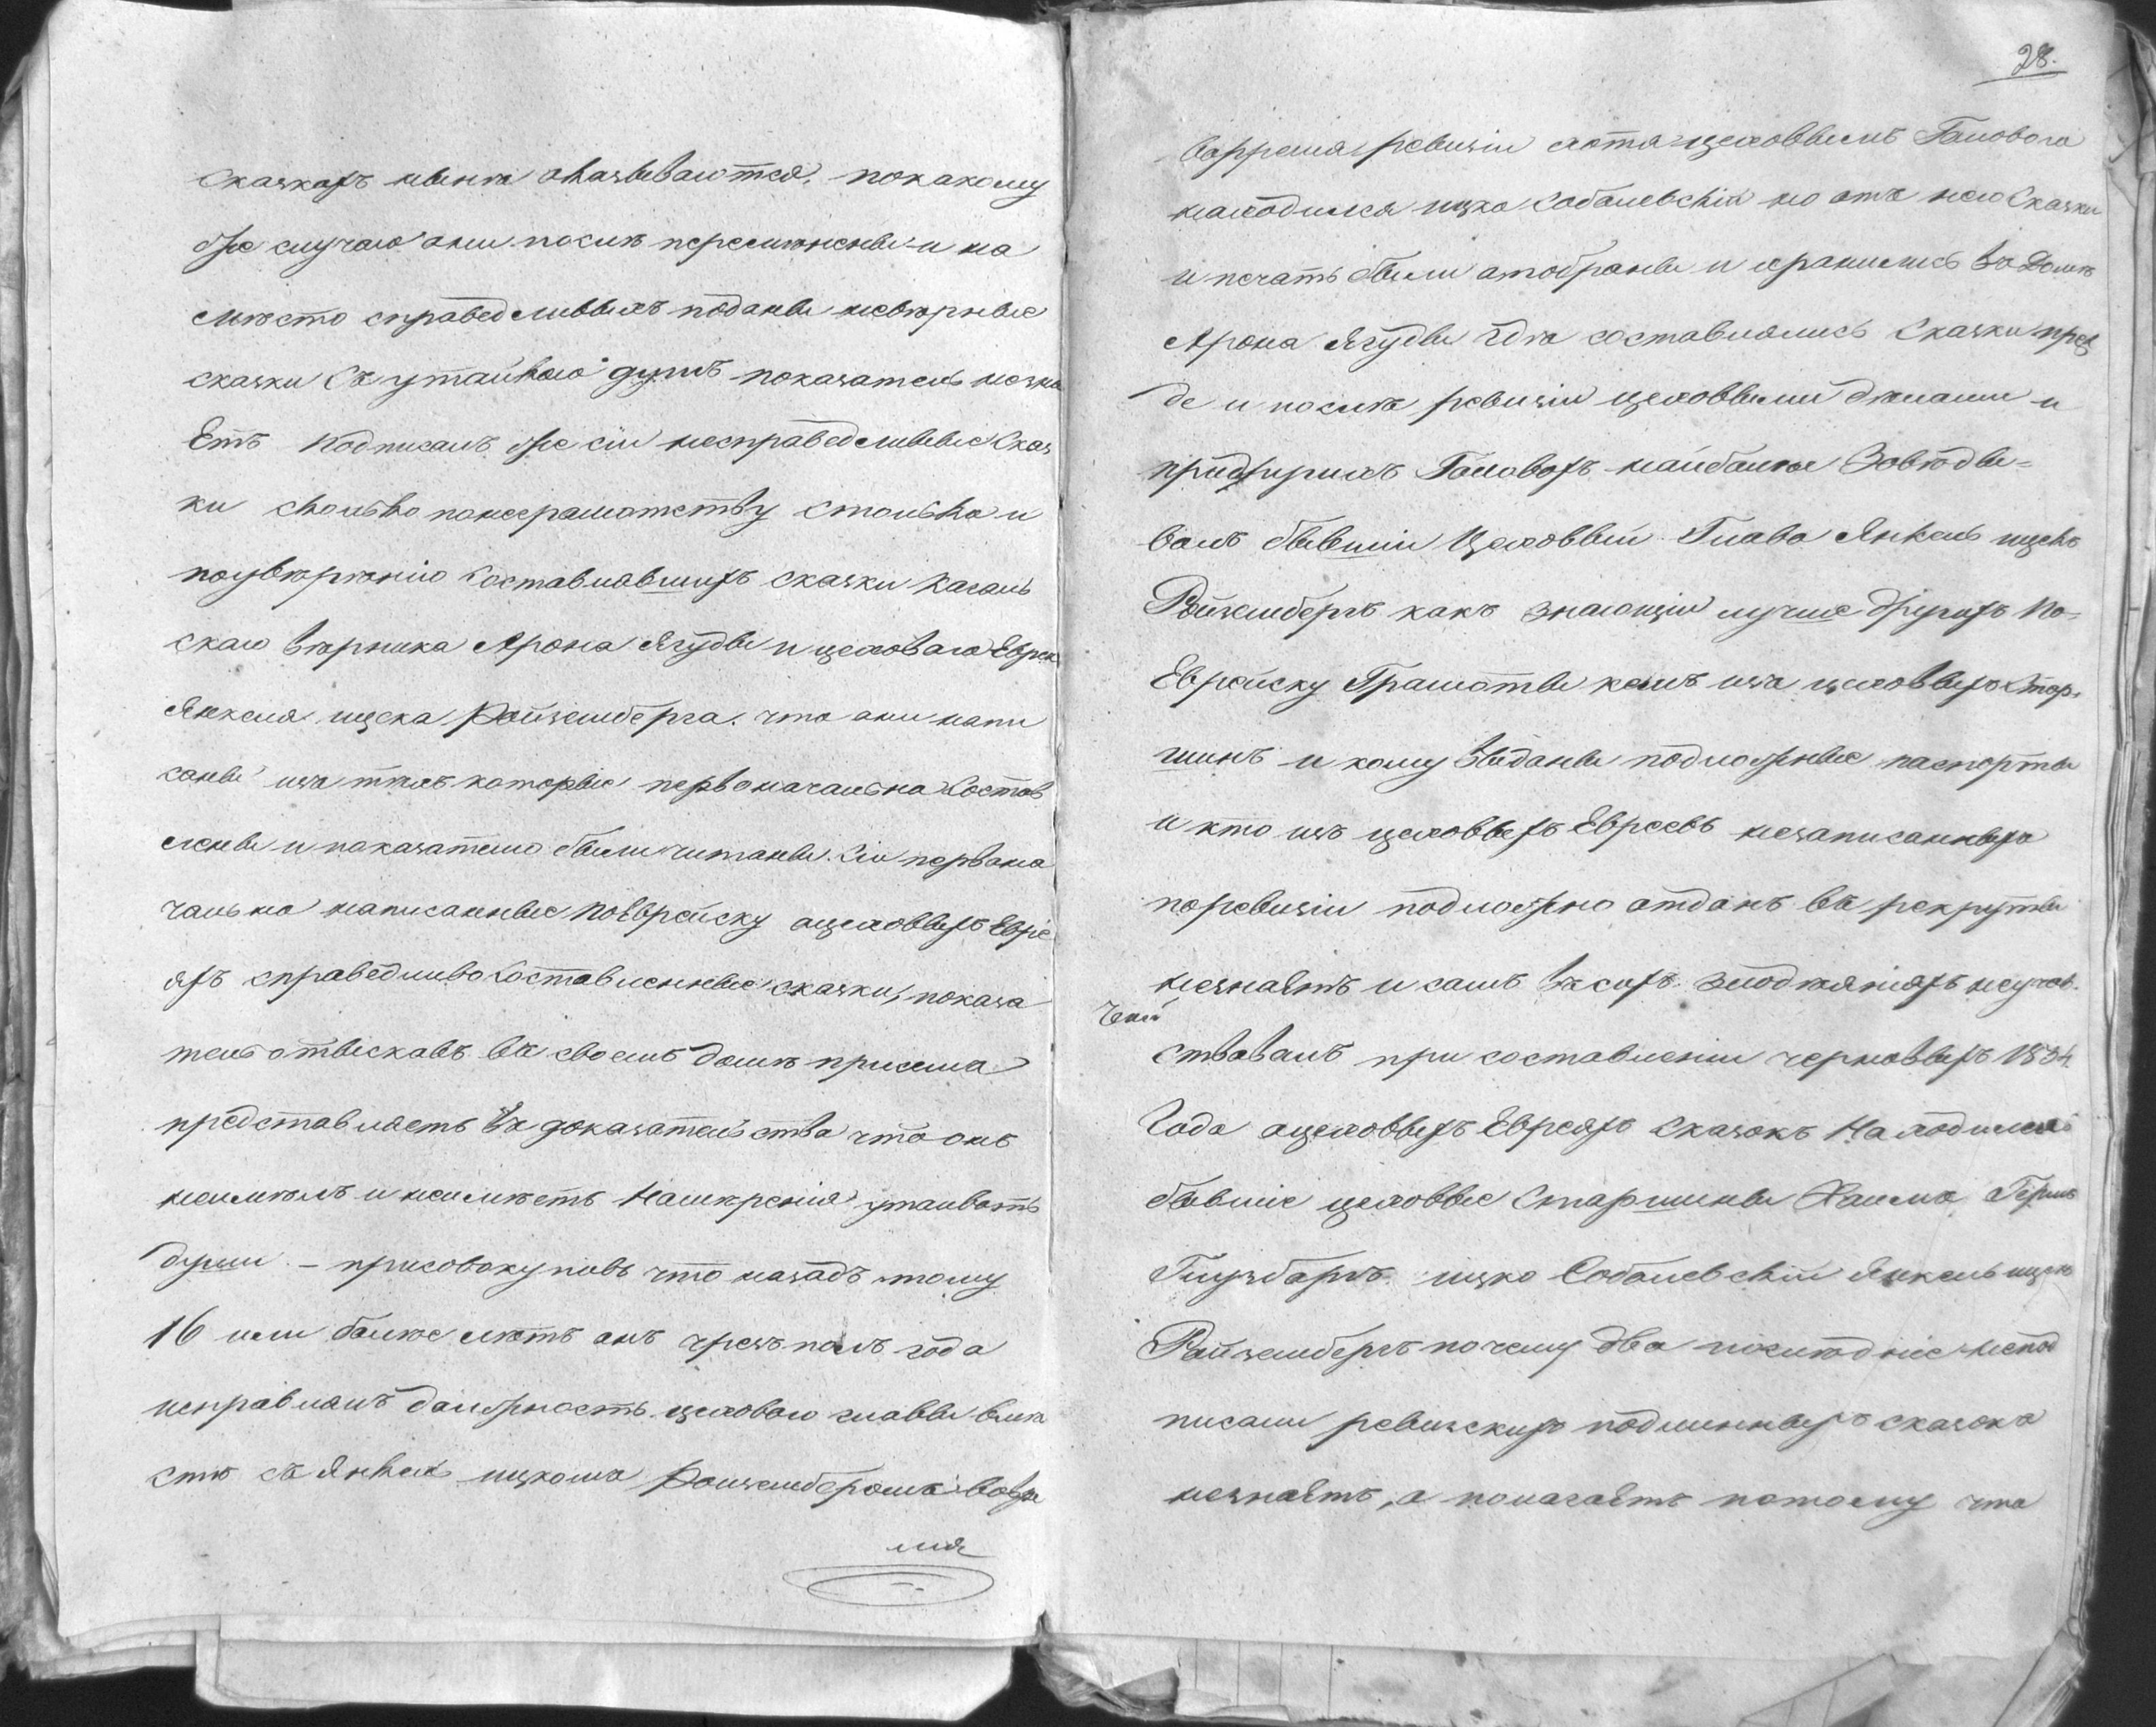 сказкахъ нынѣ оказываются, по какому
же случаю они послѣ перемѣнены и на
мѣсто справедливыхъ поданы невѣрные
сказки съ утайкою душъ показатель незна
етъ Подписалъ же сіи несправедливые Сказ
ки сколько понеграмотству столько и
поувѣренію составлявшихъ сказки кагаль
скаго вѣрника Арона Ягуды и цеховаго Еврея
Янкеля ицека Ройземберга. что они напи
саны изъ тѣхъ которые первоначально Состав
лены и показателю были читаны. Сіи первона
чально написанные поЕврейску оцеховыхъ Евре
яхъ справедливо Составленные сказки, показа
тель отыскавъ въ своемъ домѣ при семъ
представляетъ въ доказательства что онъ
неимѣлъ и неимѣетъ Намѣренія утаивать
души – присовокупивъ что назадъ тому
16 или болѣе лѣтъ онъ чрезъ полъ года
исправлялъ должность цеховаго главы вмѣ
стѣ съ Янкель ицкомъ Роиземберомъ вовре
мя
28.
Вовремя ревизіи хотя цеховымъ Головою
находился ицко Соболевскій но отъ него Сказки
и печать были отобраны и хранились въ Домѣ
Арона Ягуды гдѣ составлялись Сказки преж
де и послѣ ревизіи цеховыми дѣлами и
придругихъ Головахъ найболѣе Завѣды=
валъ бывшій Цеховый Глава Янкель ицекъ
Ройземберъ какъ знающій лучше другихъ По-
Еврейску Грамоты кемъ изъ цеховыхъ Стар-
шинъ и кому выданы подложные паспорты
и кто изъ цеховыхъ Евреевъ незаписанныхъ
поревизіи подложно отданъ въ рекруты
незнаетъ и самъ въ сихъ злодѣяніяхъ неучав-
ствовалъ при составленіи черновыхъ 1834
Года оцеховыхъ Евреяхъ сказокъ Находились
бывшіе цеховые Старшины Хаимъ Герш
Глузбергъ ицко Соболевскій Янкель ицек
Ройзембергъ почему два послѣдніе непод
писали ревизскихъ подлинныхъ сказокъ
незнаетъ, а полагаетъ потому что